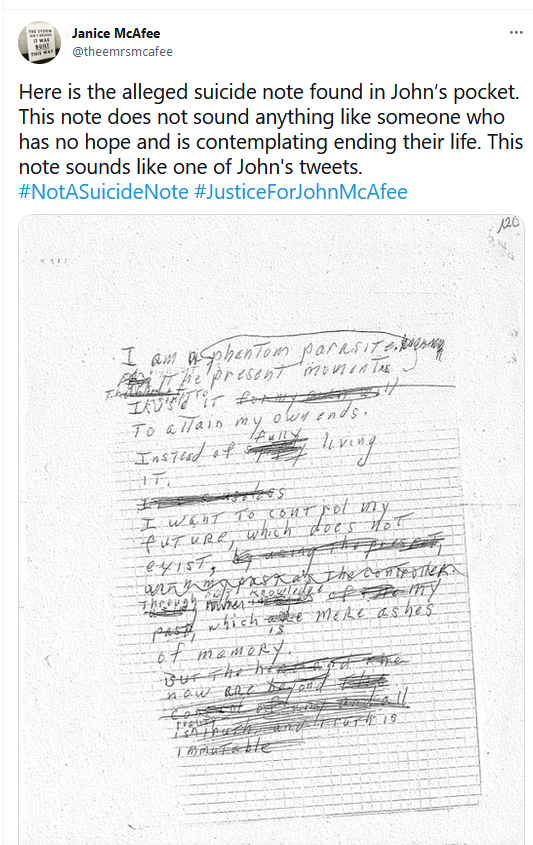 THE SYSTEM
ISN'T BROKEN
IT WAS
BUILT
THIS WAY
Janice McAfee
@theemrsmcafee
Here is the alleged suicide note found in John's pocket.
This note does not sound anything like someone who
has no hope and is contemplating ending their life. This
note sounds like one of John's tweets.
#NotASuicideNote #JusticeForJohnMcAfee
120
I am a phantom parasite.
The present moment
I use it
To attain my own ends.
Instead of fully living
it.
I want to control my
future, which does not
exist,
Through knowledge of my
past, which is mere ashes
of memory.
But the
now are beyond the
and all
and Truth is
immutable